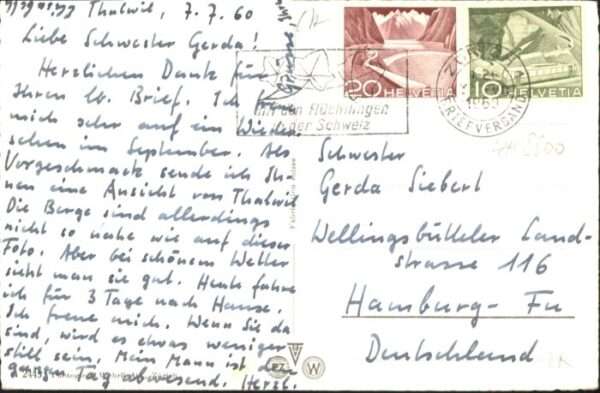 Thalwil, 7.7.60
Liebe Schwester Gerda!
Herzlichen Dank für
Ihren lb. Brief. Ich freue
mich sehr auf ein Wieder-
sehen im September. Als
Vorgeschmack sende ich Ih-
nen eine Ansicht von Thalwil
Die Berge sind allerdings
nicht so nahe wie auf dieser
Foto. Aber bei schönem Wetter
sieht man sie gut. Heute fahre
ich für 3 Tage nach Hause.
Ich freue mich. Wenn Sie da
sind, wird es etwas weniger
still sein. Mein Mann ist den
ganzen Tag abwesend. Herzl.
Grüsse
20 HELVETIA
10 HELVETIA
den Flüchtlingen
in der Schweiz
ZÜRICH
1960
BRIEFVERSAND
Schwester
Gerda Siebert
Wellingsbütteler Land-
strasse 116
Hamburg-Fu
Deutschland
W